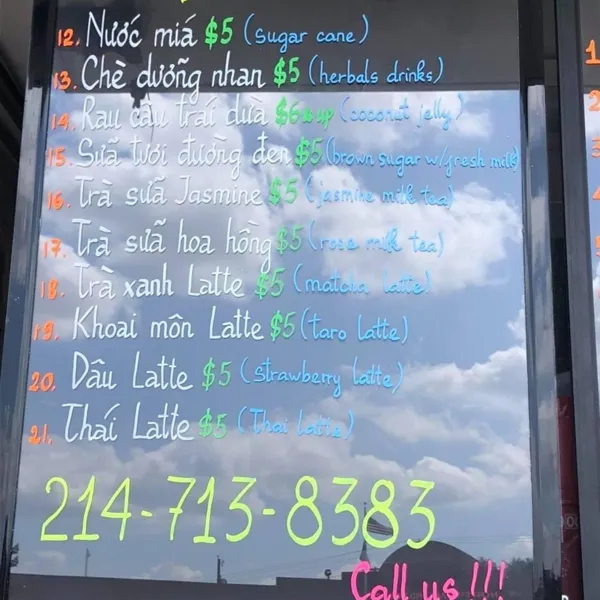 12. Nước miá $5 (sugar cane)
13. Chè dưỡng nhan $5 (herbals drinks)
14. Rau câu trái dừa $6 & up (coconut jelly)
15. Sữa tươi đường đen $5 (brown sugar w/fresh milk)
16. Trà sữa Jasmine $5 (jasmine milk tea)
17. Trà sữa hoa hồng $5 (rose milk tea)
18. Trà xanh Latte $5 (matcha latte)
19. Khoai môn Latte $5 (taro latte)
20. Dâu Latte $5 (strawberry latte)
21. Thái Latte $5 (Thai latte)
214-713-8383
Call us !!!